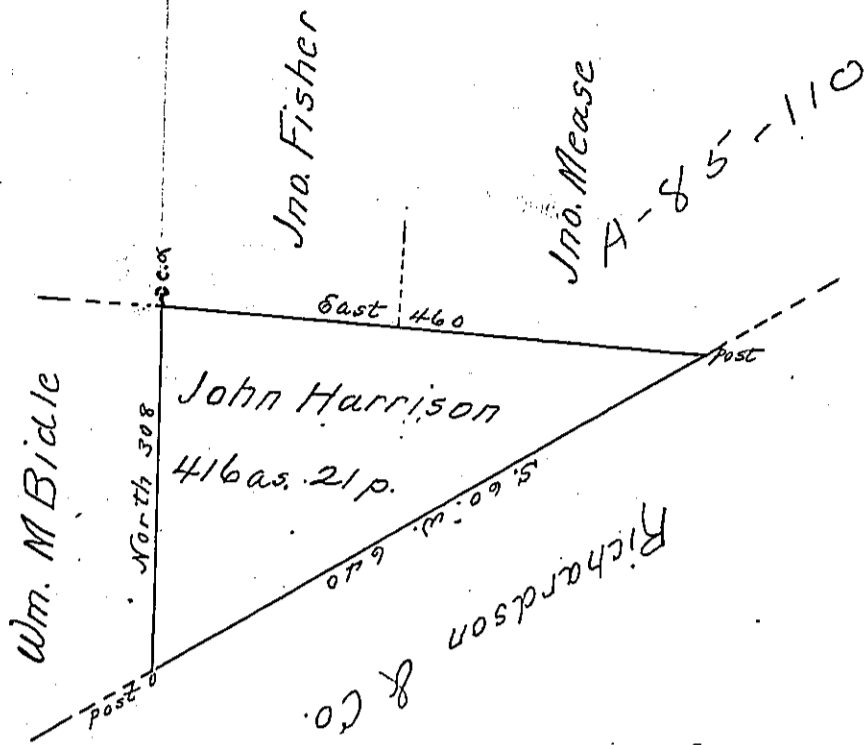 Jno. Fisher
Jno. Mease
A-85-110
East 460
post
Wm. M Bidle
North 308
John Harrison
416 as. 21 p.
S. 60. W.
Richardson & Co.
post